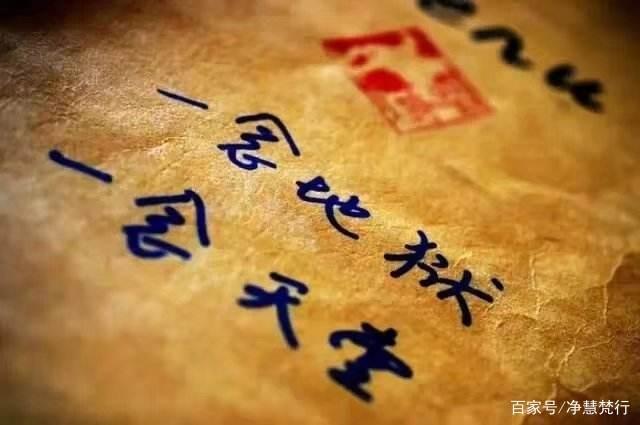 enu
一念地狱
一念天堂
百家号/净慧梵行